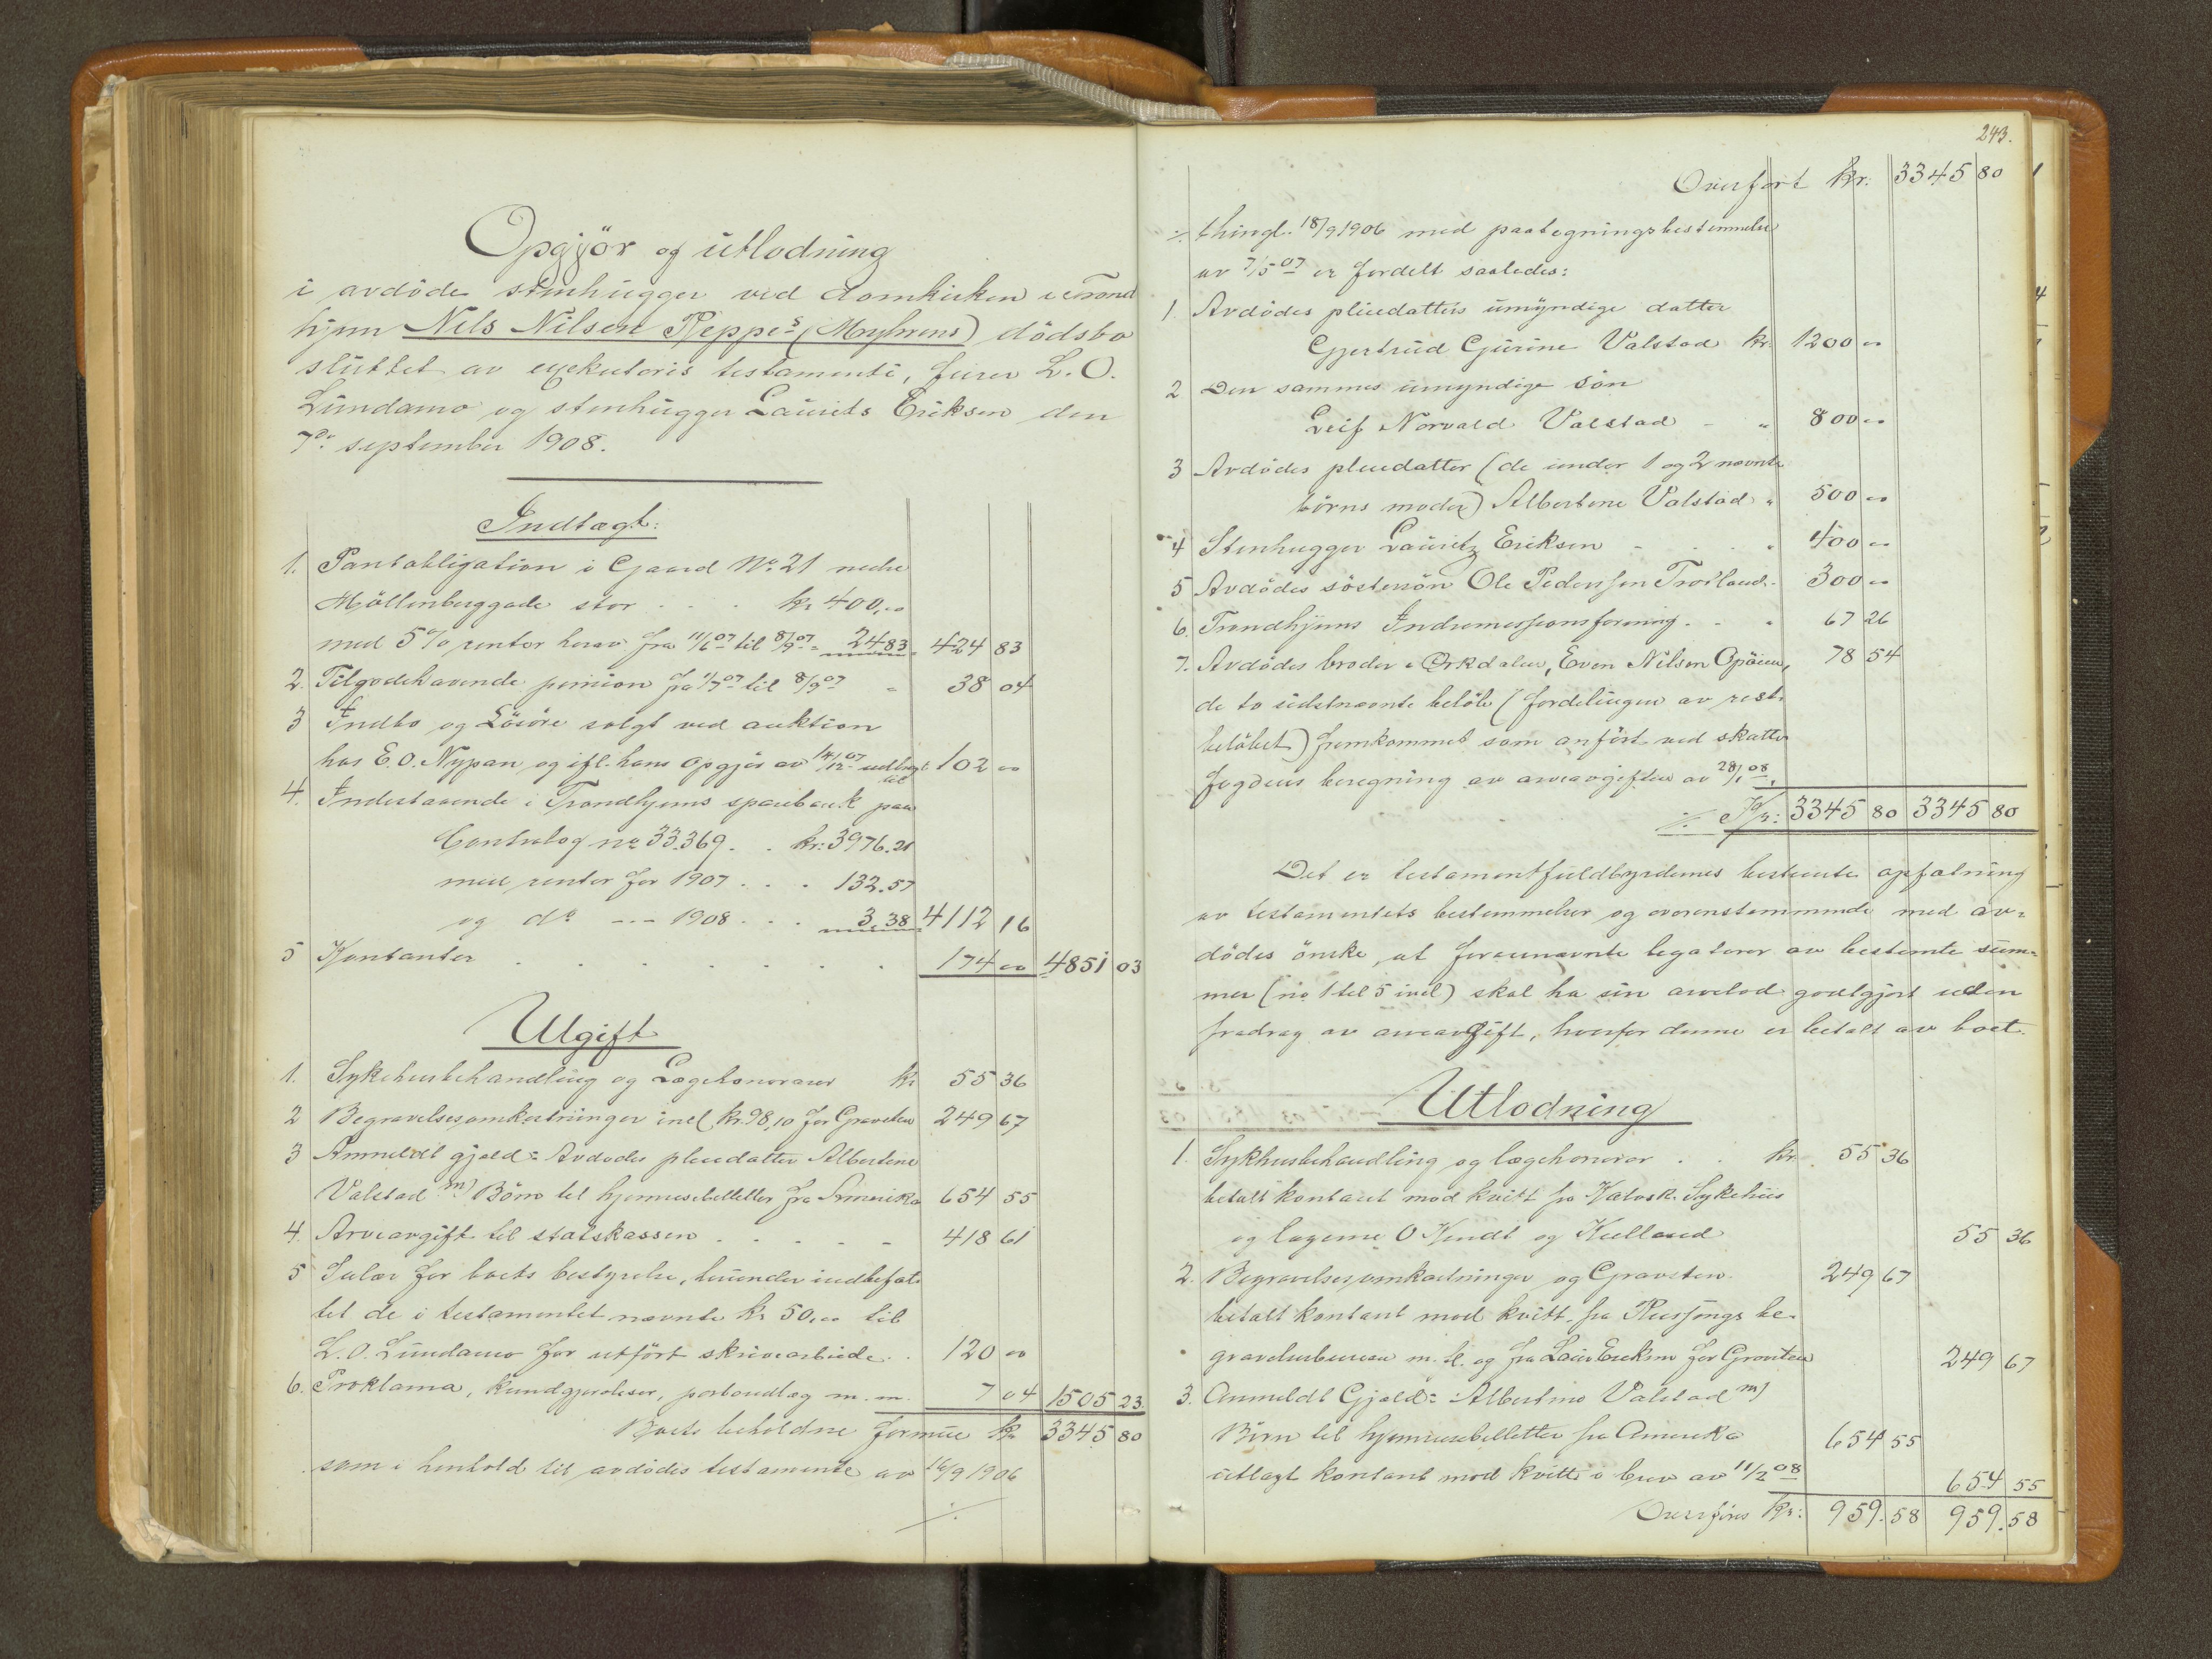 Opgjör og utlodning
i avdöde stenhugger ved domkirken i Trond
hjem Nils Nilsen Reppes (Myhrens) dödsbo
sluttet av exekutoris testamenti, furer L. O.
Lundamo og stenhugger Laurits Eriksen den
7de september 1908.
Indtægt:
1. Pantobligation i Gaard No. 21 nedre
Möllenberggade stor . . . kr 400,00
med 5% renter herav fra 11/6 07 til 8/9 07 " 24 83 424 83
2. Tilgodehavende pension fra 1/7 07 til 8/9 07 " 38 04
3 Indbo og Lösöre solgt ved auktion
hos E. O. Nypan og ifl. hans opgjör av 14/12 07 udbragt til 102 00
4. Indestaaende i Trondhjems sparebank paa
Contrabog no 33.369 . . kr: 3976.21
med renter for 1907 . . . 132.57
og do --- 1908 . . . 3.38 4112 16
5 Kontanter . . . . . . . 174 00 4851 03
Utgift
1. Sykehusbehandling og Lægehonorarer kr 55 36
2 Begravelsesomkostninger incl kr. 98,10 for Gravsten 249 67
3 Anmeldt gjæld: Avdødes pleiedatter Albertine
Valstad m/ Börn til hjemreisebilletter fra Amerika 654 55
4. Arveavgift til statskassen . . . . . 418 61
5 Salær for boets bestyrelse, herunder indbefat-
tet de i testamentet nævnte kr 50,00 til
L. O. Lundamo for utført skrivearbeide . . 120 00
6. Proklama, kundgjørelser, portoudlæg m. m. 7 04 1505 23
Boets beholdne formue kr 3345 80
som i henhold til avdödes testamente av 16/9 1906
./.
243.
Overfört kr. 3345 80
./. thingl. 18/9 1906 med paategningsbestemmelse
av 7/5 07 er fordelt saaledes:
1 Avdödes pleiedatters umyndige datter
Gjertrud Gurine Valstad kr. 1200 00
2 Den sammes umyndige sön
Leif Norvald Valstad - " 800 00
3 Avdödes pleiedatter (de under 1 og 2 nævnte
börns moder) Albertine Valstad " 500 00
4 Stenhugger Lauritz Eriksen - . . " 400 00
5 Avdödes söstersön Ole Pederssen Trodland - 300 00
6. Trondhjems Indremissionsforening . - " 67 26
7. Avdödes broder i Orkdalen, Even Nilsen Opöien, 78 54
de to sidstnævnte belöb (fordelingen av rest-
belöbet) fremkommet som anfört ved skatte-
fogdens beregning av arveavgiften av 28/1 08.
./. Kr: 3345 80 3345 80
Det er testamentfuldbyrdernes bestemte opfatning
av testamentets bestemmelser og overenstemmende med av-
dödes önske, at foranævnte legatorer av bestemte sum-
mer (no 1 til 5 incl) skal ha sin arvelod godtgjort uden
fradrag av arveavgift, hvorfor denne er betalt av boet.
Utlodning
1. Sykhusbehandling og lægehonorar . . kr. 55 36
betalt kontant mod kvitt fra Katolsk Sykehus
og lægerne O Kindt og Kielland 55 36
2. Begravelsesomkostninger og Gravsten 249 67
betalt kontant mod kvitt. fra Reesjöngs be-
gravelsesbureau m. fl. og fra Laur Eriksen for Gravsten 249 67
3. Anmeldt Gjæld: Albertine Valstad m/
Börn til hjemreisebilletter fra Amerika 654 55
utlagt kontant mod kvitt i brev av 11/2 08 654 55
Overföres kr: 959.58 959.58